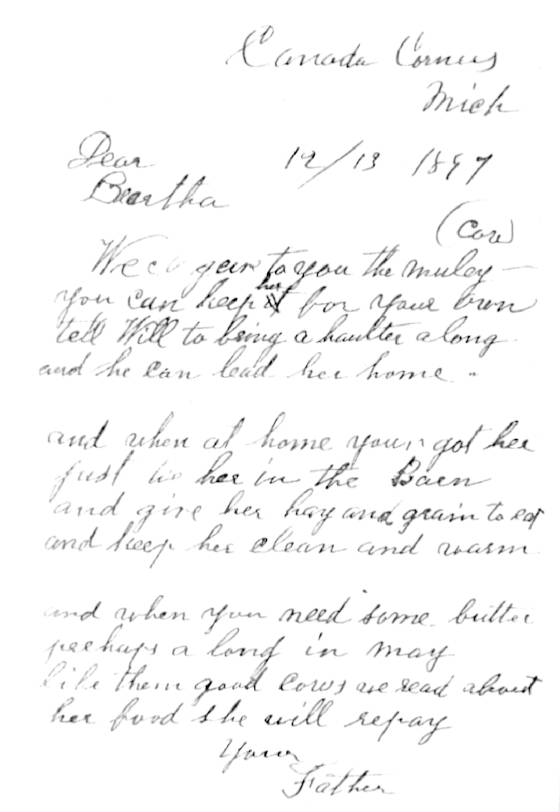 Canada Corners
Mich
Dear 12/13 1897
Beartha
(Cow)
We give to you the muley —
you can keep her for your own
tell Will to bring a haulter along
and he can lead her home -
and when at home your got her
just tie her in the Barn
and give her hay and grain to eat
and keep her clean and warm
and when you need some butter
perhaps a long in may
like them good cows we read about
her food she will repay
Your
Father